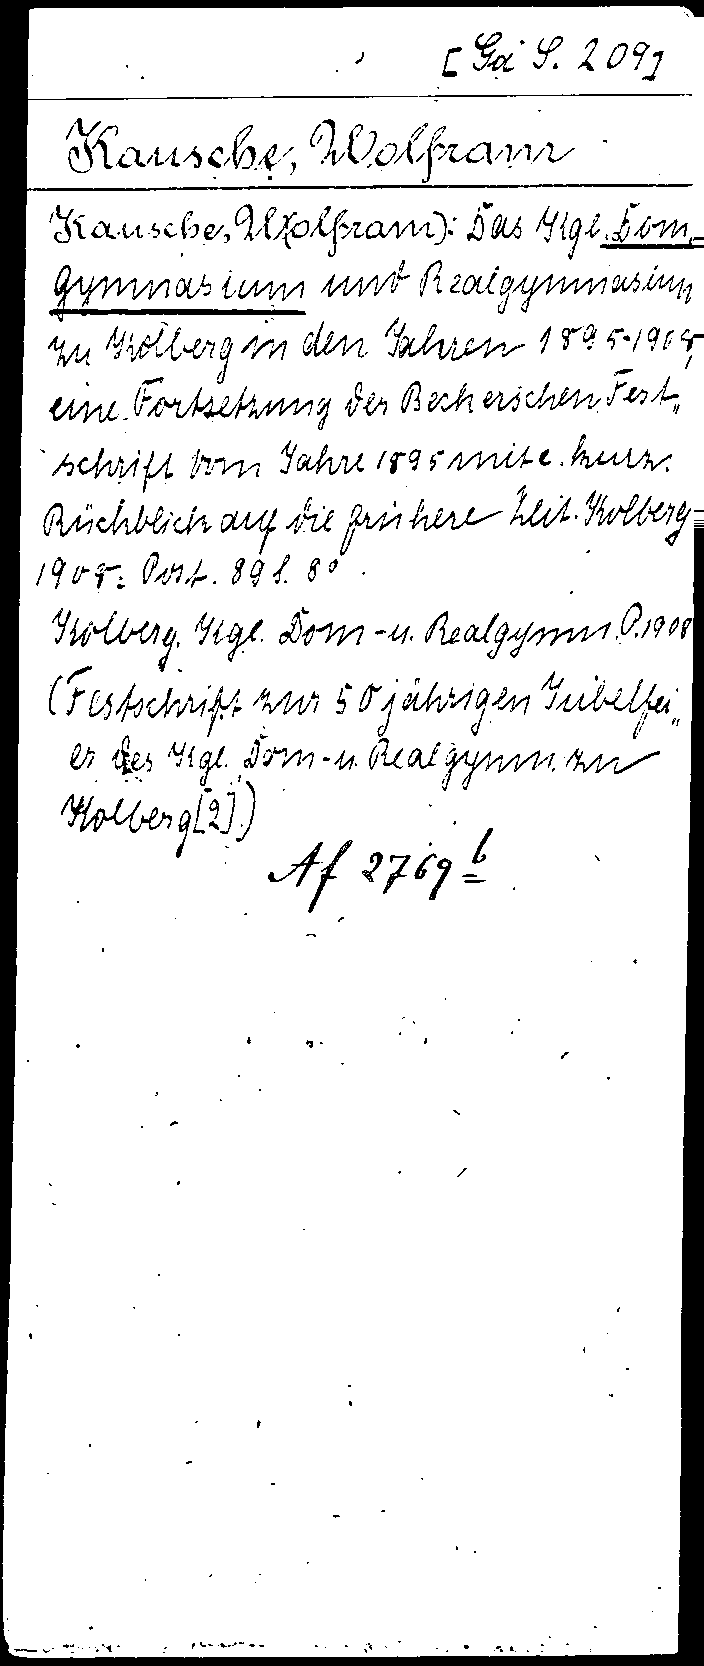 [Gä S. 209]
Kausche, Wolfram
Kausche, W(olfram): Das Kgl. Dom-
gymnasium und Realgymnasium
zu Kolberg in den Jahren 1895-1908,
eine Fortsetzung der Beckerschen Fest-
schrift vom Jahre 1895 mit e. kurz.
Rückblick auf die frühere Zeit. Kolberg
1908: Post. 89 S. 8°
Kolberg, Kgl. Dom- u. Realgymn. P. 1908
(Festschrift zur 50jährigen Jubelfei-
er des Kgl. Dom- u. Realgymn. zu
Kolberg [2].)
Af 2769 b